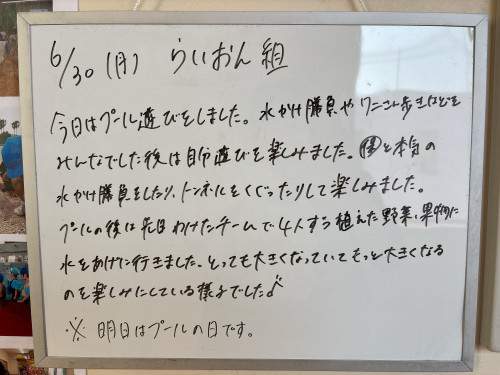 6/30(月) らいおん組
今日はプール遊びをしました。水かけ勝負やワニさん歩きなどを
みんなでした後は自分遊びを楽しみました。と本気の
水かけ勝負をしたり、トンネルをくぐったりして楽しみました。
プールの後は先日わけたチームで4人ずつ植えた野菜、果物に
水をあげに行きました。とっても大きくなっていてもっと大きくなる
のを楽しみにしている様子でした♪
※ 明日はプールの日です。